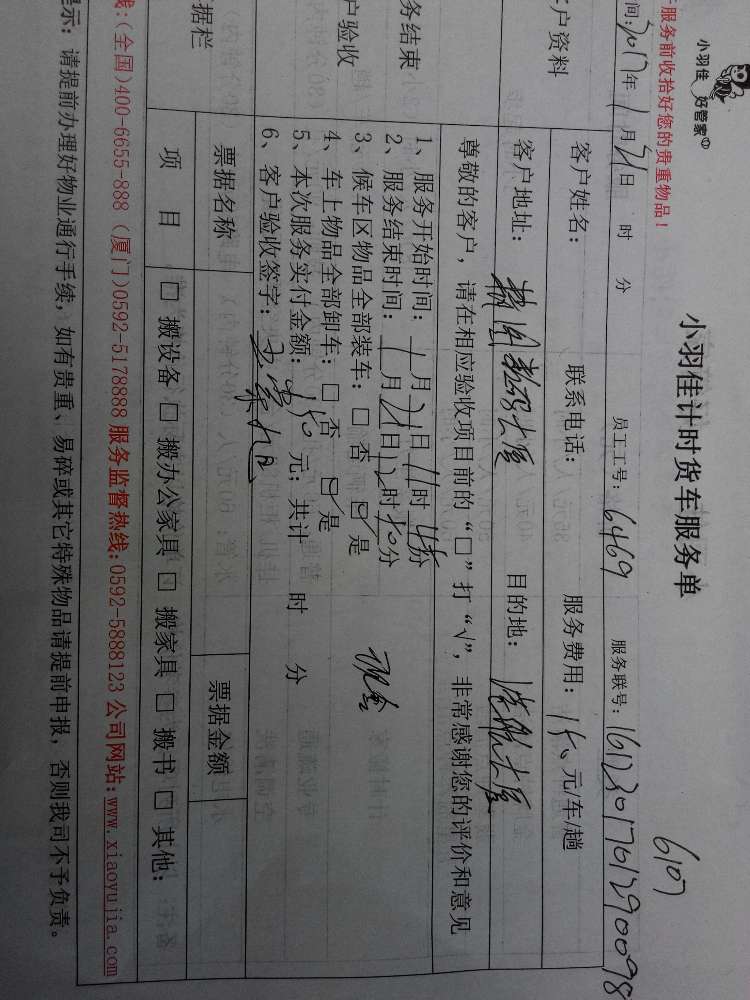 小羽佳 好管家
小羽佳计时货车服务单
6107
服务前收拾好您的贵重物品！
间：2017年1月21日 时 分 员工工号：6469 服务联号：16123017012900098
户资料
客户姓名： 联系电话： 服务费用：150元/车/趟
客户地址： 数码大厦 目的地： 大厦
尊敬的客户，请在相应验收项目前的“□”打“√”，非常感谢您的评价和意见
务结束
户验收
1、服务开始时间：1月21日11时 分
2、服务结束时间：1月21日12时50分
3、候车区物品全部装车：□ 否 ☑ 是
现金
4、车上物品全部卸车：□ 否 ☑ 是
5、本次服务实付金额：150元；共计 时 分
6、客户验收签字：
据栏
票据名称 票据金额
项 目 □ 搬设备 □ 搬办公家具 □ 搬家具 □ 搬书 □ 其他：
线:(全国)400-6655-888 (厦门)0592-5178888 服务监督热线:0592-5888123 公司网站:www.xiaoyujia.com
提示：请提前办理好物业通行手续，如有贵重、易碎或其它特殊物品请提前申报，否则我司不予负责。